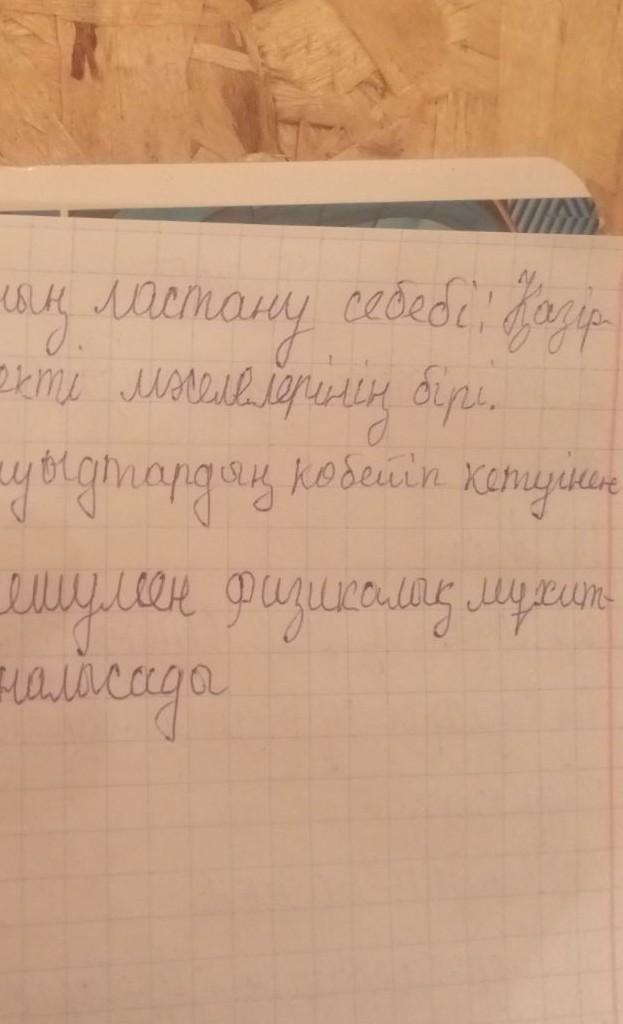 ның ластану себебі; Қазір-
екті мжелелерінің бірі.
уыдтардың көбейіп кетуінен
ешумен физикалық мұхит-
наласады